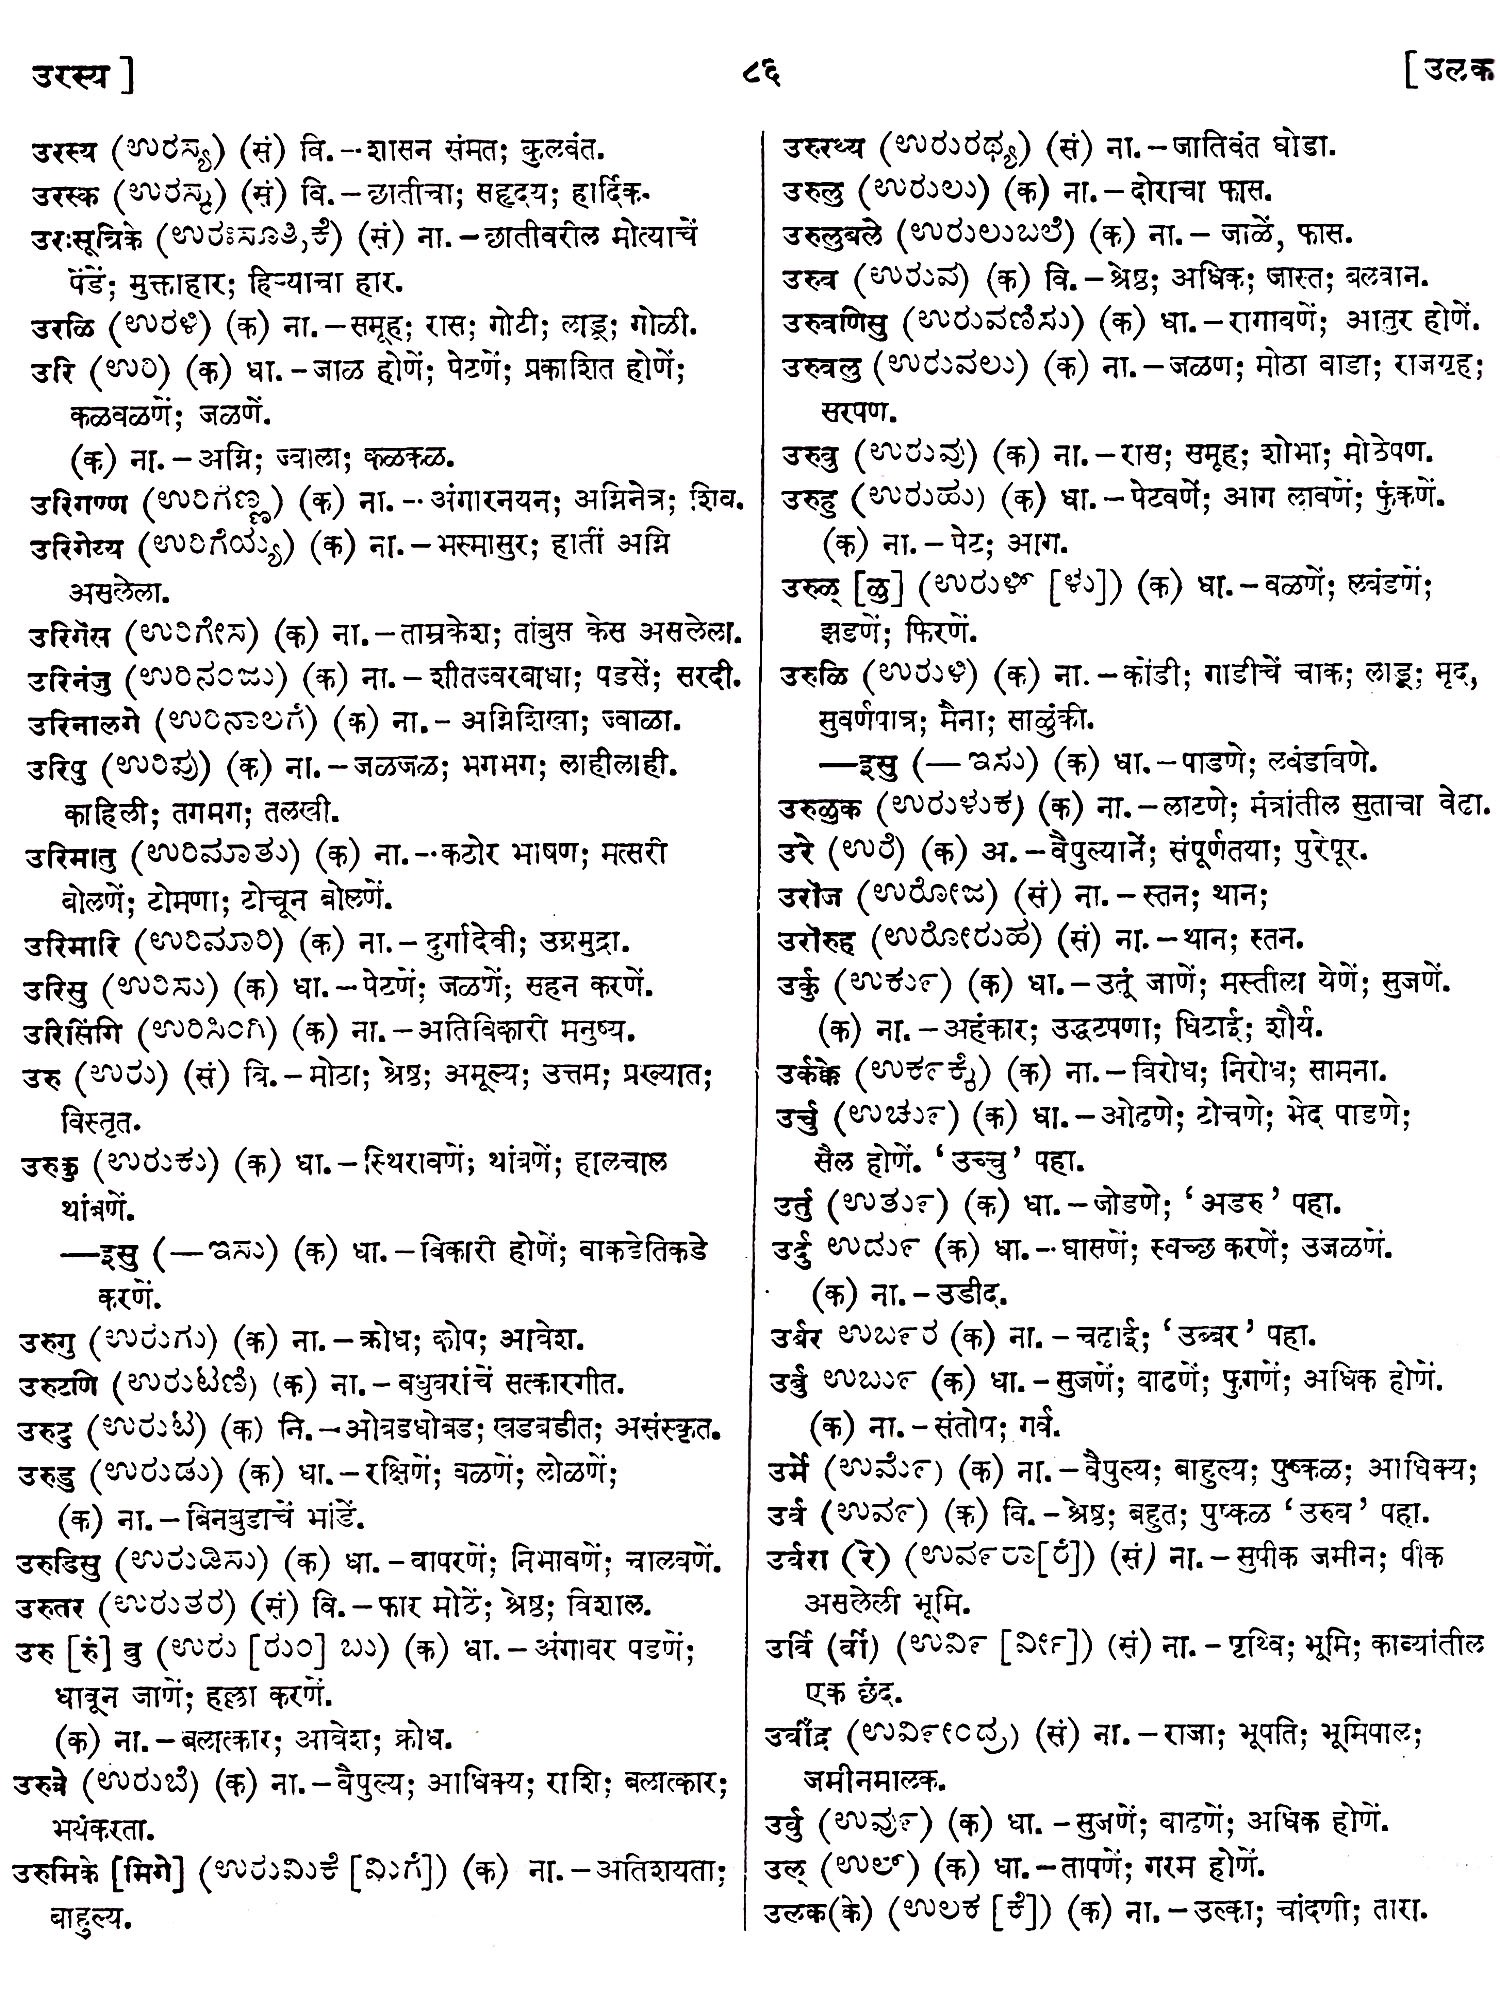 उरस्य ]
८६
[ उलक
उरस्य (ಉರಸ್ಯ) (सं) वि.-शासन संमत; कुलवंत.
उरस्क (ಉರಸ್ಕ) (सं) वि.-छातीचा; सहृदय; हार्दिक.
उरःसूत्रिके (ಉರಃಸೂತ್ರಿಕೆ) (सं) ना.-छातीवरील मोत्याचें
पेंडें; मुक्ताहार; हिऱ्याचा हार.
उरळि (ಉರಳಿ) (क) ना.-समूह; रास; गोटी; लाडू; गोळी.
उरि (ಉರಿ) (क) धा.-जाळ होणें; पेटणें; प्रकाशित होणें;
कळवळणें; जळणें.
(क) ना.-अग्नि; ज्वाला; कळकळ.
उरिगण्ण (ಉರಿಗಣ್ಣ) (क) ना.-अंगारनयन; अग्निनेत्र; शिव.
उरिगेय्य (ಉರಿಗೆಯ್ಯ) (क) ना.-भस्मासुर; हातीं अग्नि
असलेला.
उरिगेस (ಉರಿಗೇಸ) (क) ना.-ताम्रकेश; तांबुस केस असलेला.
उरिनंजु (ಉರಿನಂಜು) (क) ना.-शीतज्वरबाधा; पडसें; सरदी.
उरिनालगे (ಉರಿನಾಲಗೆ) (क) ना.- अग्निशिखा; ज्वाळा.
उरिपु (ಉರಿಪು) (क) ना.-जळजळ; भगभग; लाहीलाही.
काहिली; तगमग; तलखी.
उरिमातु (ಉರಿಮಾತು) (क) ना.-कठोर भाषण; मत्सरी
बोलणें; टोमणा; टोचून बोलणें.
उरिमारि (ಉರಿಮಾರಿ) (क) ना.-दुर्गादेवी; उग्रमुद्रा.
उरिसु (ಉರಿಸು) (क) धा.-पेटणें; जळणें; सहन करणें.
उरिसिंगि (ಉರಿಸಿಂಗಿ) (क) ना.-अतिविकारी मनुष्य.
उरु (ಉರು) (सं) वि.-मोठा; श्रेष्ठ; अमूल्य; उत्तम; प्रख्यात;
विस्तृत.
उरुकु (ಉರುಕು) (क) धा.-स्थिरावणें; थांबणें; हालचाल
थांबणें.
—इसु (—ಇಸು) (क) धा.-विकारी होणें; वाकडेतिकडे
करणें.
उरुगु (ಉರುಗು) (क) ना.-क्रोध; कोप; आवेश.
उरुटणि (ಉರುಟಣಿ) (क) ना.-वधुवरांचें सत्कारगीत.
उरुटु (ಉರುಟು) (क) वि.-ओबडधोबड; खडबडीत; असंस्कृत.
उरुडु (ಉರುಡು) (क) धा.-रक्षिणें; वळणें; लोळणें;
(क) ना.-बिनबुडाचें भांडें.
उरुडिसु (ಉರುಡಿಸು) (क) धा.-वापरणें; निभावणें; चालवणें.
उरुतर (ಉರುತರ) (सं) वि.-फार मोठें; श्रेष्ठ; विशाल.
उरु [रुं] बु (ಉರು [ರುಂ] ಬು) (क) धा.-अंगावर पडणें;
धावून जाणें; हल्ला करणें.
(क) ना.-बलात्कार; आवेश; क्रोध.
उरुबे (ಉರುಬೆ) (क) ना.-वैपुल्य; आधिक्य; राशि; बलात्कार;
भयंकरता.
उरुमिके [मिगे] (ಉರುಮಿಕೆ [ಮಿಗೆ]) (क) ना.-अतिशयता;
बाहुल्य.
उरुरथ्य (ಉರುರಥ್ಯ) (सं) ना.-जातिवंत घोडा.
उरुलु (ಉರುಲು) (क) ना.-दोराचा फास.
उरुलुबले (ಉರುಲುಬಲೆ) (क) ना.- जाळें, फास.
उरुव (ಉರುವ) (क) वि.-श्रेष्ठ; अधिक; जास्त; बलवान.
उरुवणिसु (ಉರುವಣಿಸು) (क) धा.-रागावणें; आतुर होणें.
उरुवलु (ಉರುವಲು) (क) ना.-जळण; मोठा वाडा; राजगृह;
सरपण.
उरुवु (ಉರುವು) (क) ना.-रास; समूह; शोभा; मोठेपण.
उरुहु (ಉರುಹು) (क) धा.-पेटवणें; आग लावणें; फुंकणें.
(क) ना.-पेट; आग.
उरुळ् [ळु] (ಉರುಳ್ [ಳು]) (क) धा.-वळणें; लवंडणें;
झडणें; फिरणें.
उरुळि (ಉರುಳಿ) (क) ना.-कोंडी; गाडीचें चाक; लाडू; मृद,
सुवर्णपात्र; मैना; साळुंकी.
—इसु (—ಇಸು) (क) धा.-पाडणे; लवंडविणे.
उरुळुक (ಉರುಳುಕ) (क) ना.-लाटणे; मंत्रांतील सुताचा वेढा.
उरे (ಉರೆ) (क) अ.-वैपुल्यानें; संपूर्णतया; पुरेपूर.
उरोज (ಉರೋಜ) (सं) ना.-स्तन; थान;
उरोरुह (ಉರೋರುಹ) (सं) ना.-थान; स्तन.
उर्कु (ಉರ್ಕು) (क) धा.-उतूं जाणें; मस्तीला येणें; सुजणें.
(क) ना.-अहंकार; उद्धटपणा; धिटाई; शौर्य.
उर्कक्के (ಉರ್ಕಕ್ಕೆ) (क) ना.-विरोध; निरोध; सामना.
उर्चु (ಉರ್ಚು) (क) धा.-ओढणे; टोचणे; भेद पाडणे;
सैल होणें. ‘उच्चु’ पहा.
उर्तु (ಉರ್ತು) (क) धा.-जोडणे; ‘अडरु’ पहा.
उर्दु ಉರ್ದು (क) धा.-घासणें; स्वच्छ करणें; उजळणें.
(क) ना.-उडीद.
उर्बर ಉರ್ಬರ (क) ना.-चढाई; ‘उब्बर’ पहा.
उर्बु ಉರ್ಬು (क) धा.-सुजणें; वाढणें; फुगणें; अधिक होणें.
(क) ना.-संतोष; गर्व.
उर्मे (ಉರ್ಮೆ) (क) ना.-वैपुल्य; बाहुल्य; पुष्कळ; आधिक्य;
उर्व (ಉರ್ವ) (क) वि.-श्रेष्ठ; बहुत; पुष्कळ ‘उरुव’ पहा.
उर्वरा (रे) (ಉರ್ವರಾ[ರೆ]) (सं) ना.-सुपीक जमीन; पीक
असलेली भूमि.
उर्वि (र्वी) (ಉರ್ವಿ [ರ್ವೀ]) (सं) ना.-पृथ्वि; भूमि; काव्यांतील
एक छंद.
उर्वींद्र (ಉರ್ವೀಂದ್ರ) (सं) ना.-राजा; भूपति; भूमिपाल;
जमीनमालक.
उर्वु (ಉರ್ವು) (क) धा.-सुजणें; वाढणें; अधिक होणें.
उल् (ಉಲ್) (क) धा.-तापणें; गरम होणें.
उलक(के) (ಉಲಕ [ಕೆ]) (क) ना.-उल्का; चांदणी; तारा.